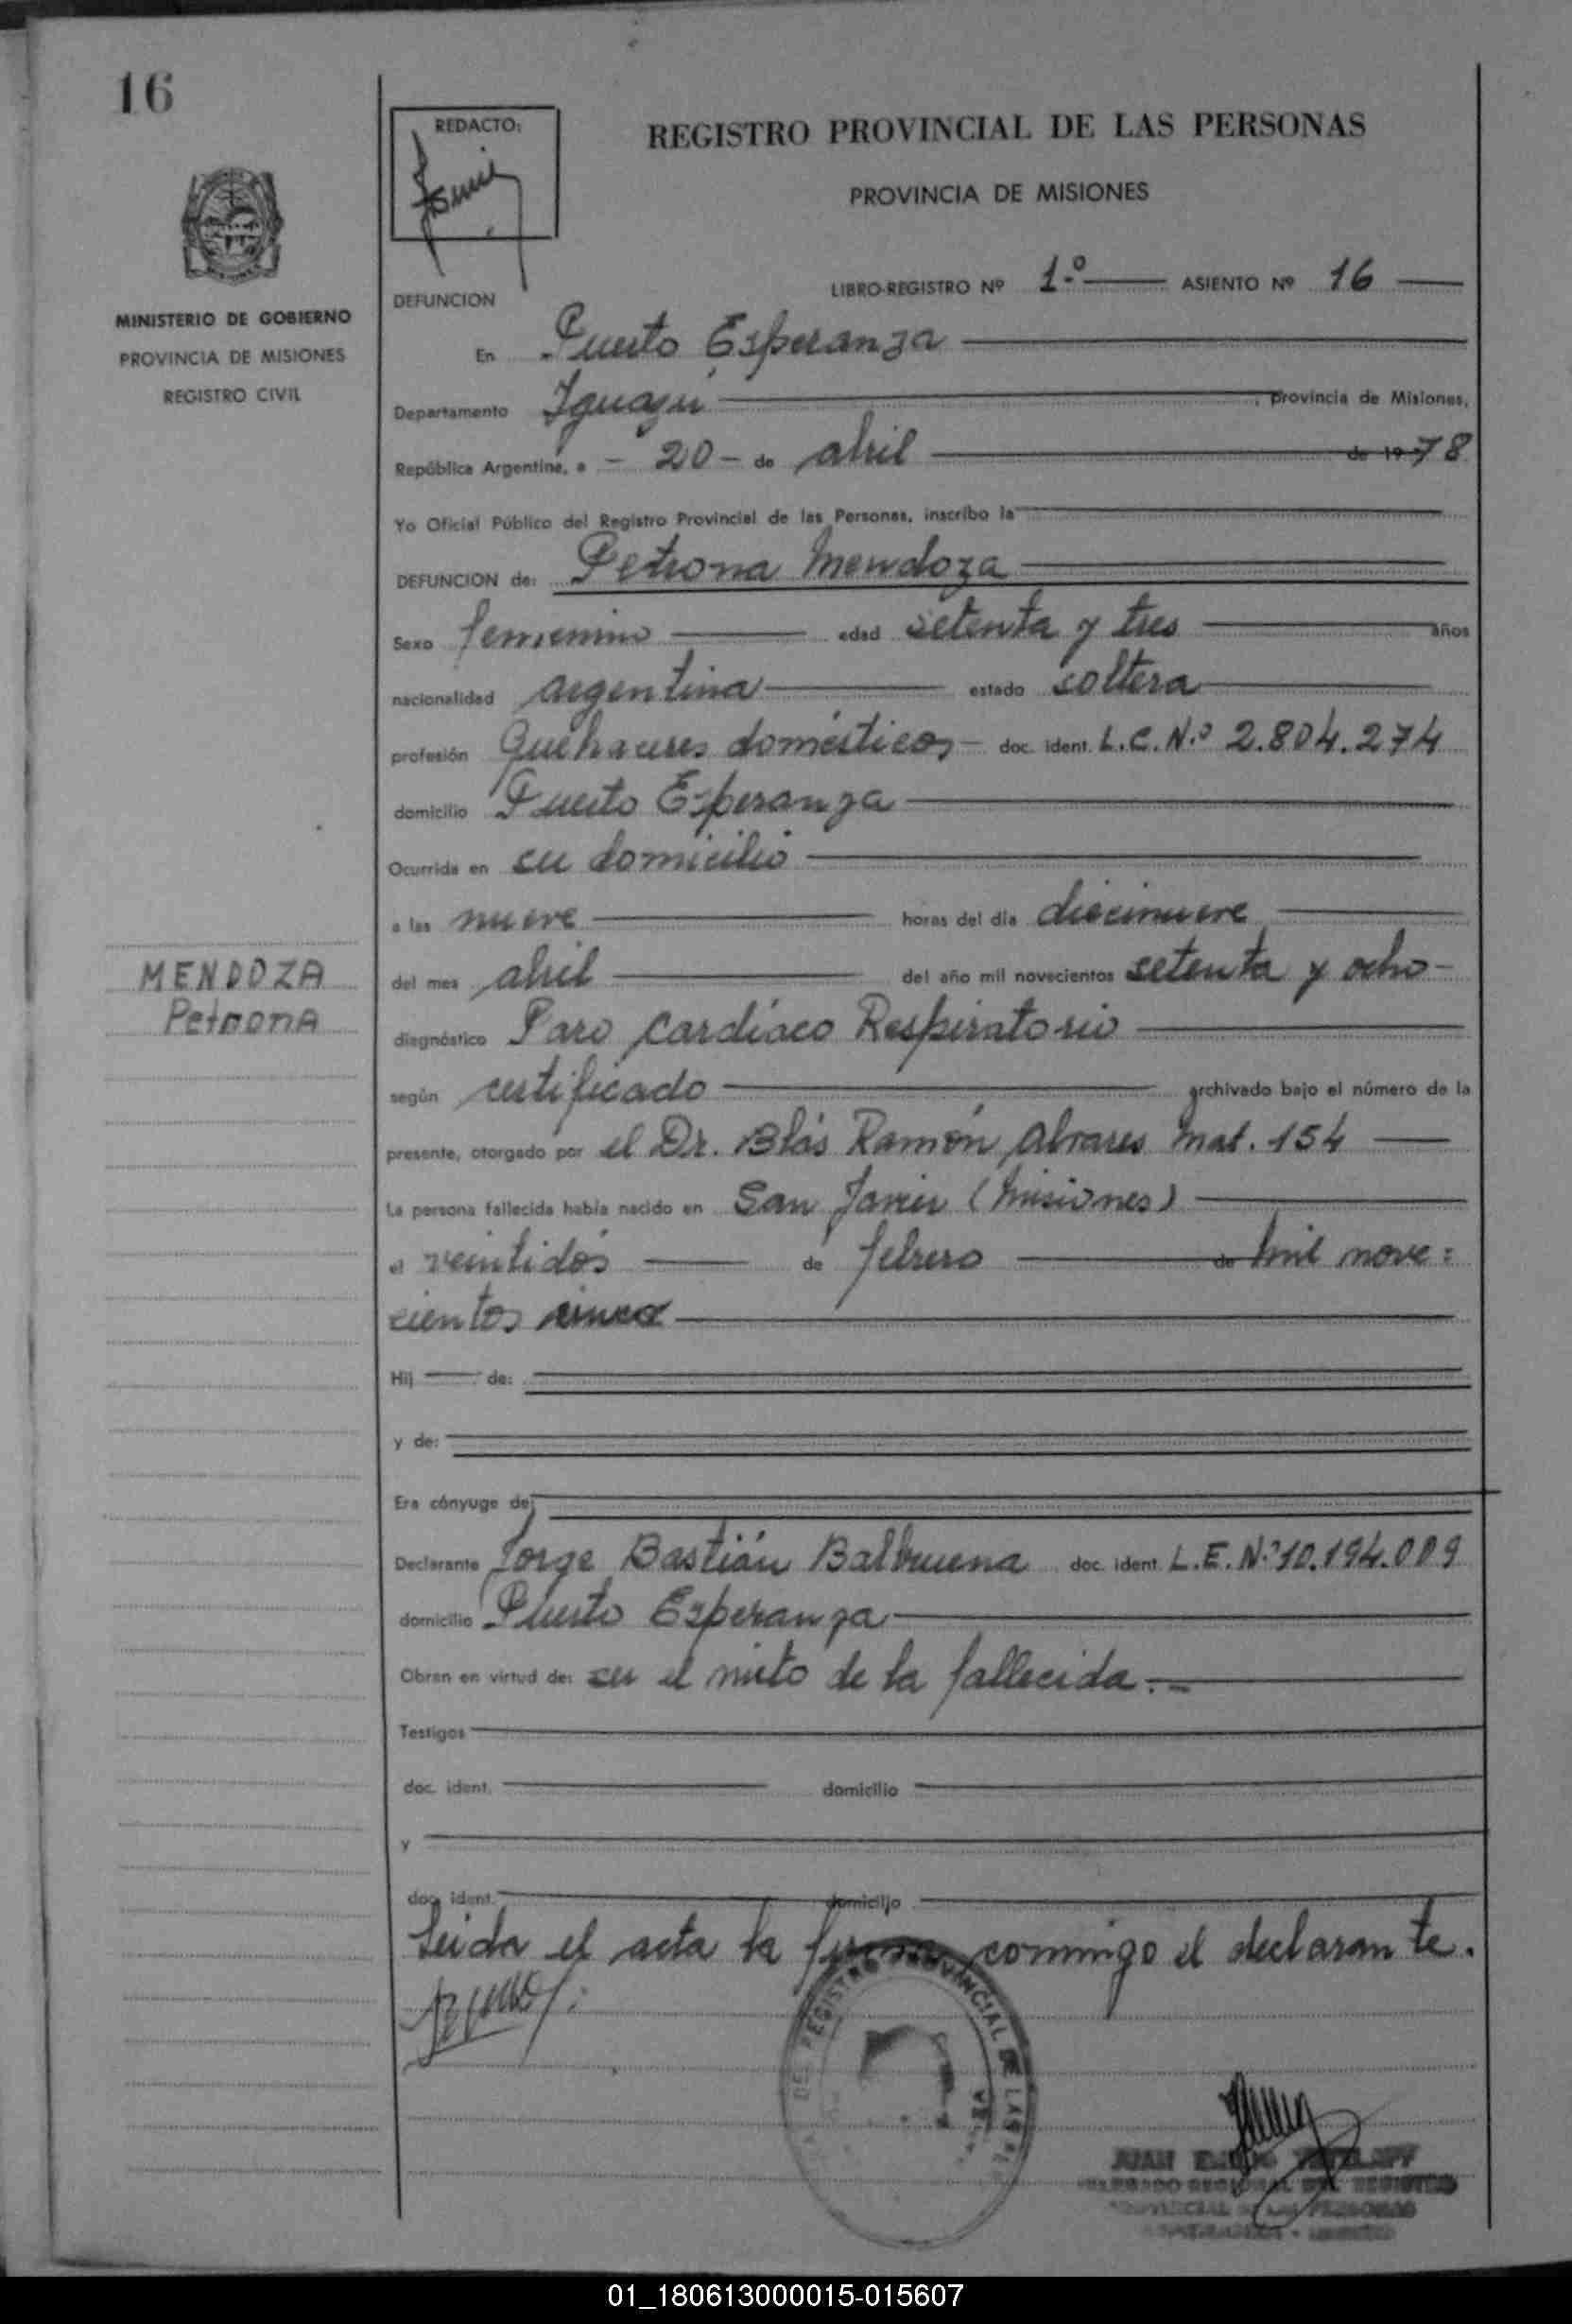 16
REDACTO:
REGISTRO PROVINCIAL DE LAS PERSONAS
PROVINCIA DE MISIONES
MINISTERIO DE GOBIERNO
PROVINCIA DE MISIONES
REGISTRO CIVIL
LIBRO-REGISTRO Nº 1º ASIENTO Nº 16
DEFUNCION
En Puerto Esperanza
Departamento Iguazú, provincia de Misiones,
República Argentina, a - 20 - de abril de 1978
Yo Oficial Público del Registro Provincial de las Personas, inscribo la
DEFUNCION de: Petrona Mendoza
Sexo femenino edad setenta y tres años
nacionalidad argentina estado soltera
profesión Quehaceres domésticos - doc. ident. L.C. N.º 2.804.274
domicilio Puerto Esperanza
Ocurrida en su domicilio
a las nueve horas del día diecinueve
MENDOZA
Petrona
del mes abril del año mil novecientos setenta y ocho -
diagnóstico Paro cardíaco Respiratorio
según certificado archivado bajo el número de la
presente, otorgado por el Dr. Blás Ramón Alvares Mat. 154
La persona fallecida había nacido en San Javier (Misiones)
el veintidós de febrero de mil nove=
cientos cinco
Hij de:
y de:
Era cónyuge de:
Declarante Jorge Bastián Balbuena doc. ident. L.E. N.º 10.194.009
domicilio Puerto Esperanza
Obran en virtud de: ser el nieto de la fallecida.-
Testigos
doc. ident. domicilio
y
doc. ident. domicilio
Leida el acta la firma conmigo el declarante.
REGISTRO PROVINCIAL DE LAS
JUAN
DELEGADO REGIONAL DEL REGISTRO
PROVINCIAL DE LAS PERSONAS
01_180613000015-015607